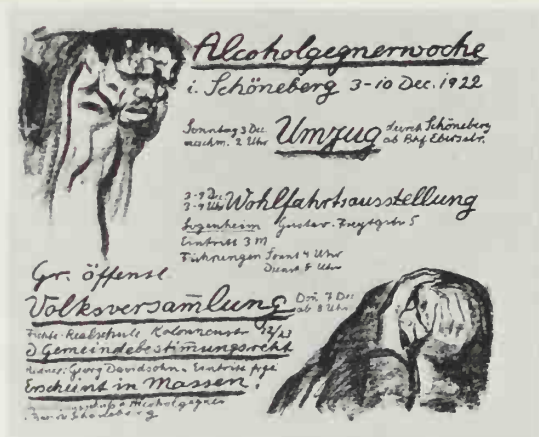 Alcoholgegnerwoche
i. Schöneberg 3-10 Dec. 1922
Sonntag 3 Dec. nachm. 2 Uhr Umzug durch Schöneberg ab Bhf. Ebersstr.
3-9 Dec. 3-9 Uhr Wohlfahrtsausstellung
Jugenheim Gustav-Freytagstr 5
Eintritt 3 M
Führungen Sonnt 4 Uhr
Dienst 8 Uhr
Gr. öffentl
Volksversam̄lung Don. 7 Dec ab 8 Uhr
Fichte-Realschule Kolonnenstr 22/23
Gemeindebestim̄ungsrecht
Redner: Georg Davidsohn Eintritt frei
Erscheint in Massen!
Alcoholgegner
Schöneberg